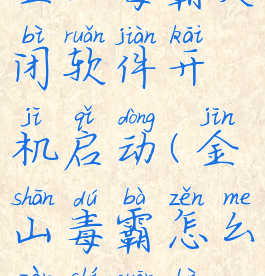 bì ruǎn jiàn kāi
闭软件开
jī qǐ dòng jīn
机启动(金
shān dú bà zěn me
山毒霸怎么